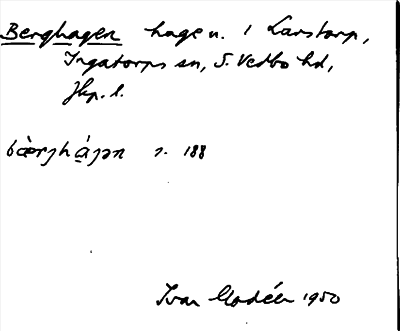 Berghagen hage u. 1 Larstorp,
Ingatorps sn, S. Vedbo hd,
Jkp. l.
bæ̀rjhá̱ɡən s. 188
Ivar Modéer 1950